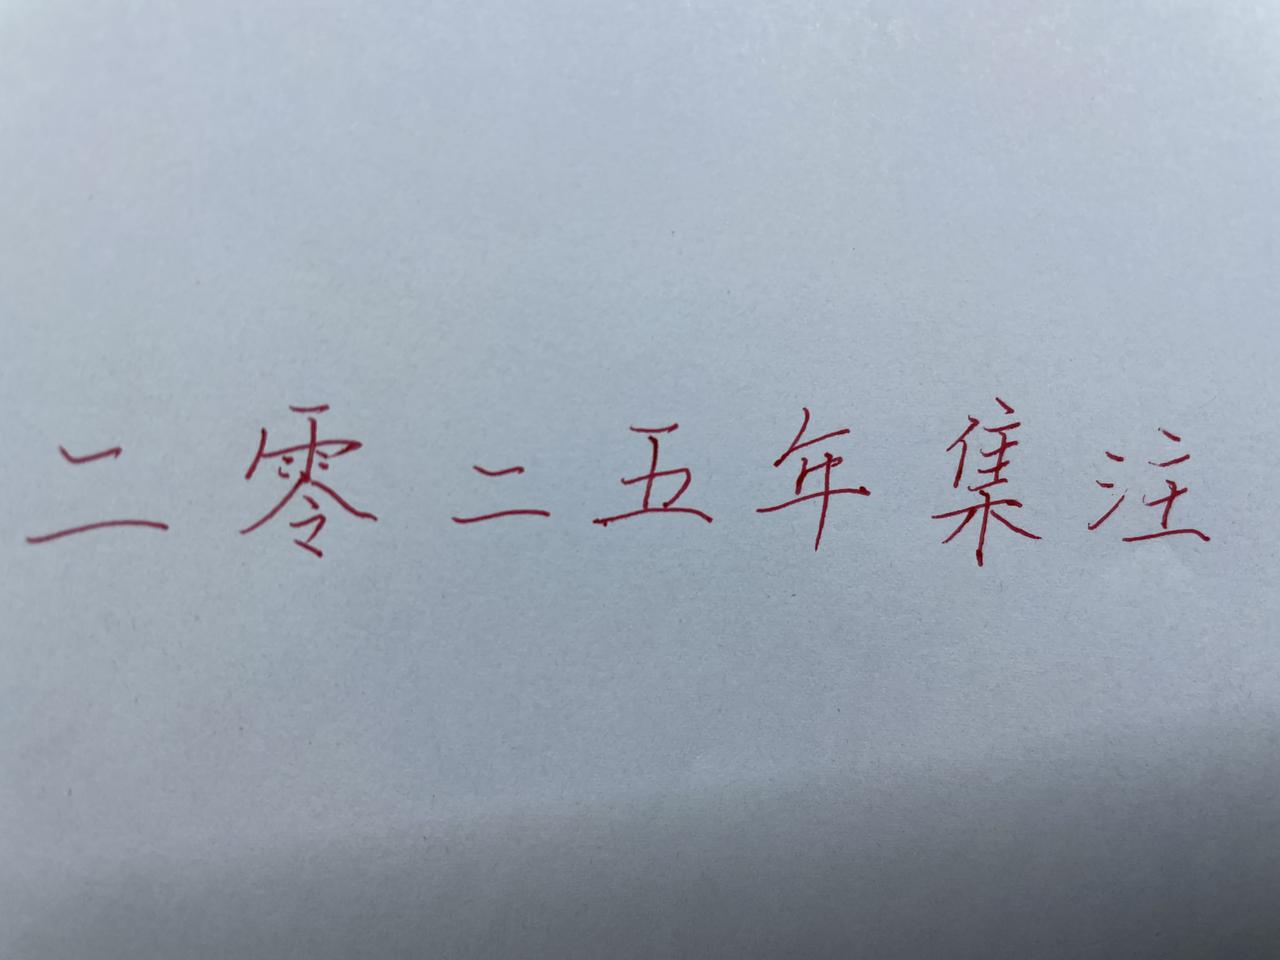 二零二五年集注